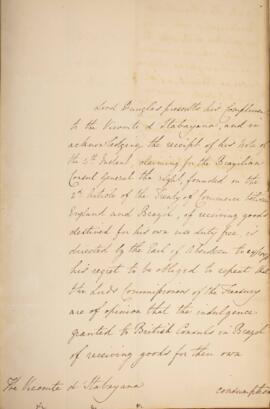 Lord Dunglas presents his Compliments
to the Vicomte d'Itabayana, and in
acknowledging the receipt of his note of
the 4th Instant, claiming for the Brazilian
Consul General the right, founded on the
2nd Article of the Treaty of Commerce between
England and Brazil, of receiving goods
destined for his own use duty free, is
directed by the Earl of Aberdeen to express
his regret to be obliged to repeat that
the Lords Commissioners of the Treasury
are of opinion that the indulgence
granted to British Consuls in Brazil
of receiving goods for their own
The Vicomte d'Itabayana
consumption